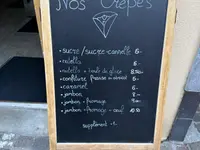 Nos Crêpes
• sucre/sucre-cannelle 6.-
• nutella 6.-
• nutella + boule de glace 8.50.-
• confiture fraise ou abricot 6.-
• caramel 6.-
• jambon 8.-
• jambon - fromage
• jambon - fromage - oeuf
supplément